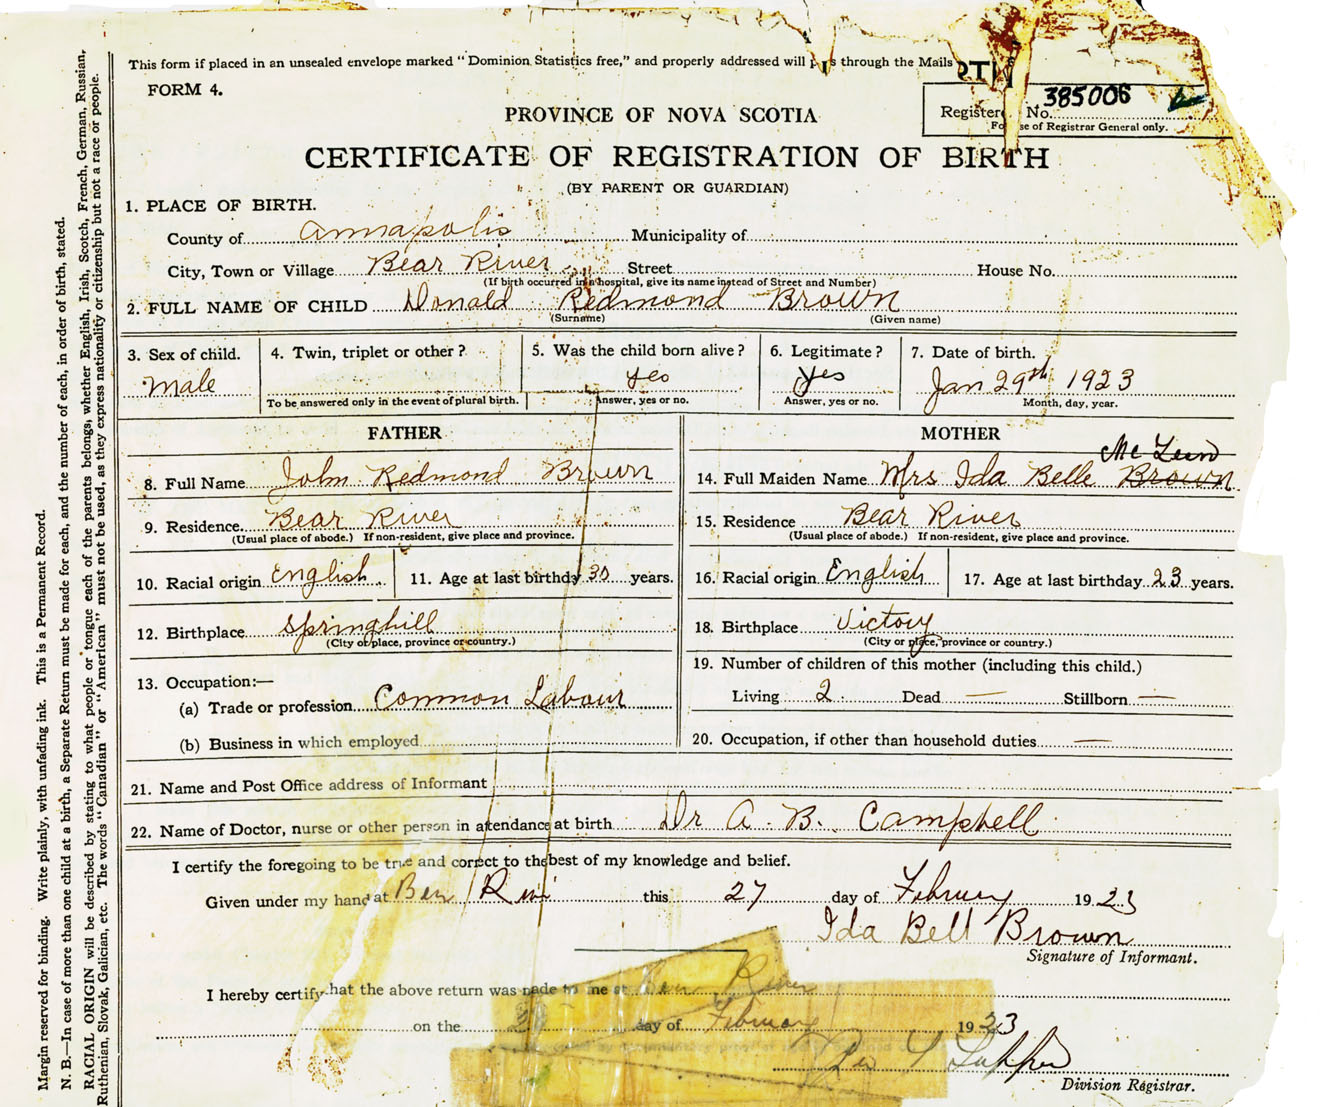 This form if placed in an unsealed envelope marked "Dominion Statistics free," and properly addressed will pass through the Mails
FORM 4.
Registered No. 385006
For use of Registrar General only.
PROVINCE OF NOVA SCOTIA
CERTIFICATE OF REGISTRATION OF BIRTH
(BY PARENT OR GUARDIAN)
1. PLACE OF BIRTH.
County of Annapolis Municipality of
City, Town or Village Bear River Street House No.
(If birth occurred in a hospital, give its name instead of Street and Number)
2. FULL NAME OF CHILD Donald Redmond Brown
(Surname) (Given name)
3. Sex of child. 4. Twin, triplet or other? 5. Was the child born alive? 6. Legitimate? 7. Date of birth.
Male yes yes Jan 29th 1923
To be answered only in the event of plural birth. Answer, yes or no. Answer, yes or no. Month, day, year.
FATHER MOTHER
8. Full Name John Redmond Brown 14. Full Maiden Name Mrs Ida Belle Brown
9. Residence. Bear River 15. Residence Bear River
(Usual place of abode.) If non-resident, give place and province. (Usual place of abode.) If non-resident, give place and province.
10. Racial origin English 11. Age at last birthday 30 years. 16. Racial origin English 17. Age at last birthday 23 years.
12. Birthplace Springhill 18. Birthplace Victory
(City or place, province or country.) (City or place, province or country.)
13. Occupation:— 19. Number of children of this mother (including this child.)
(a) Trade or profession Common Labour Living 2 Dead — Stillborn —
(b) Business in which employed 20. Occupation, if other than household duties —
21. Name and Post Office address of Informant
22. Name of Doctor, nurse or other person in attendance at birth Dr A. B. Campbell
I certify the foregoing to be true and correct to the best of my knowledge and belief.
Given under my hand at Bear River this 27 day of February 1923
Ida Bell Brown
Signature of Informant.
I hereby certify that the above return was made to me at Bear River
on the day of February 1923
Division Registrar.
Margin reserved for binding. Write plainly, with unfading ink. This is a Permanent Record.
N. B.—In case of more than one child at a birth, a Separate Return must be made for each, and the number of each, in order of birth, stated.
RACIAL ORIGIN will be described by stating to what people or tongue each of the parents belongs, whether English, Irish, Scotch, French, German, Russian,
Ruthenian, Slovak, Galician, etc. The words "Canadian" or "American" must not be used, as they express nationality or citizenship but not a race or people.